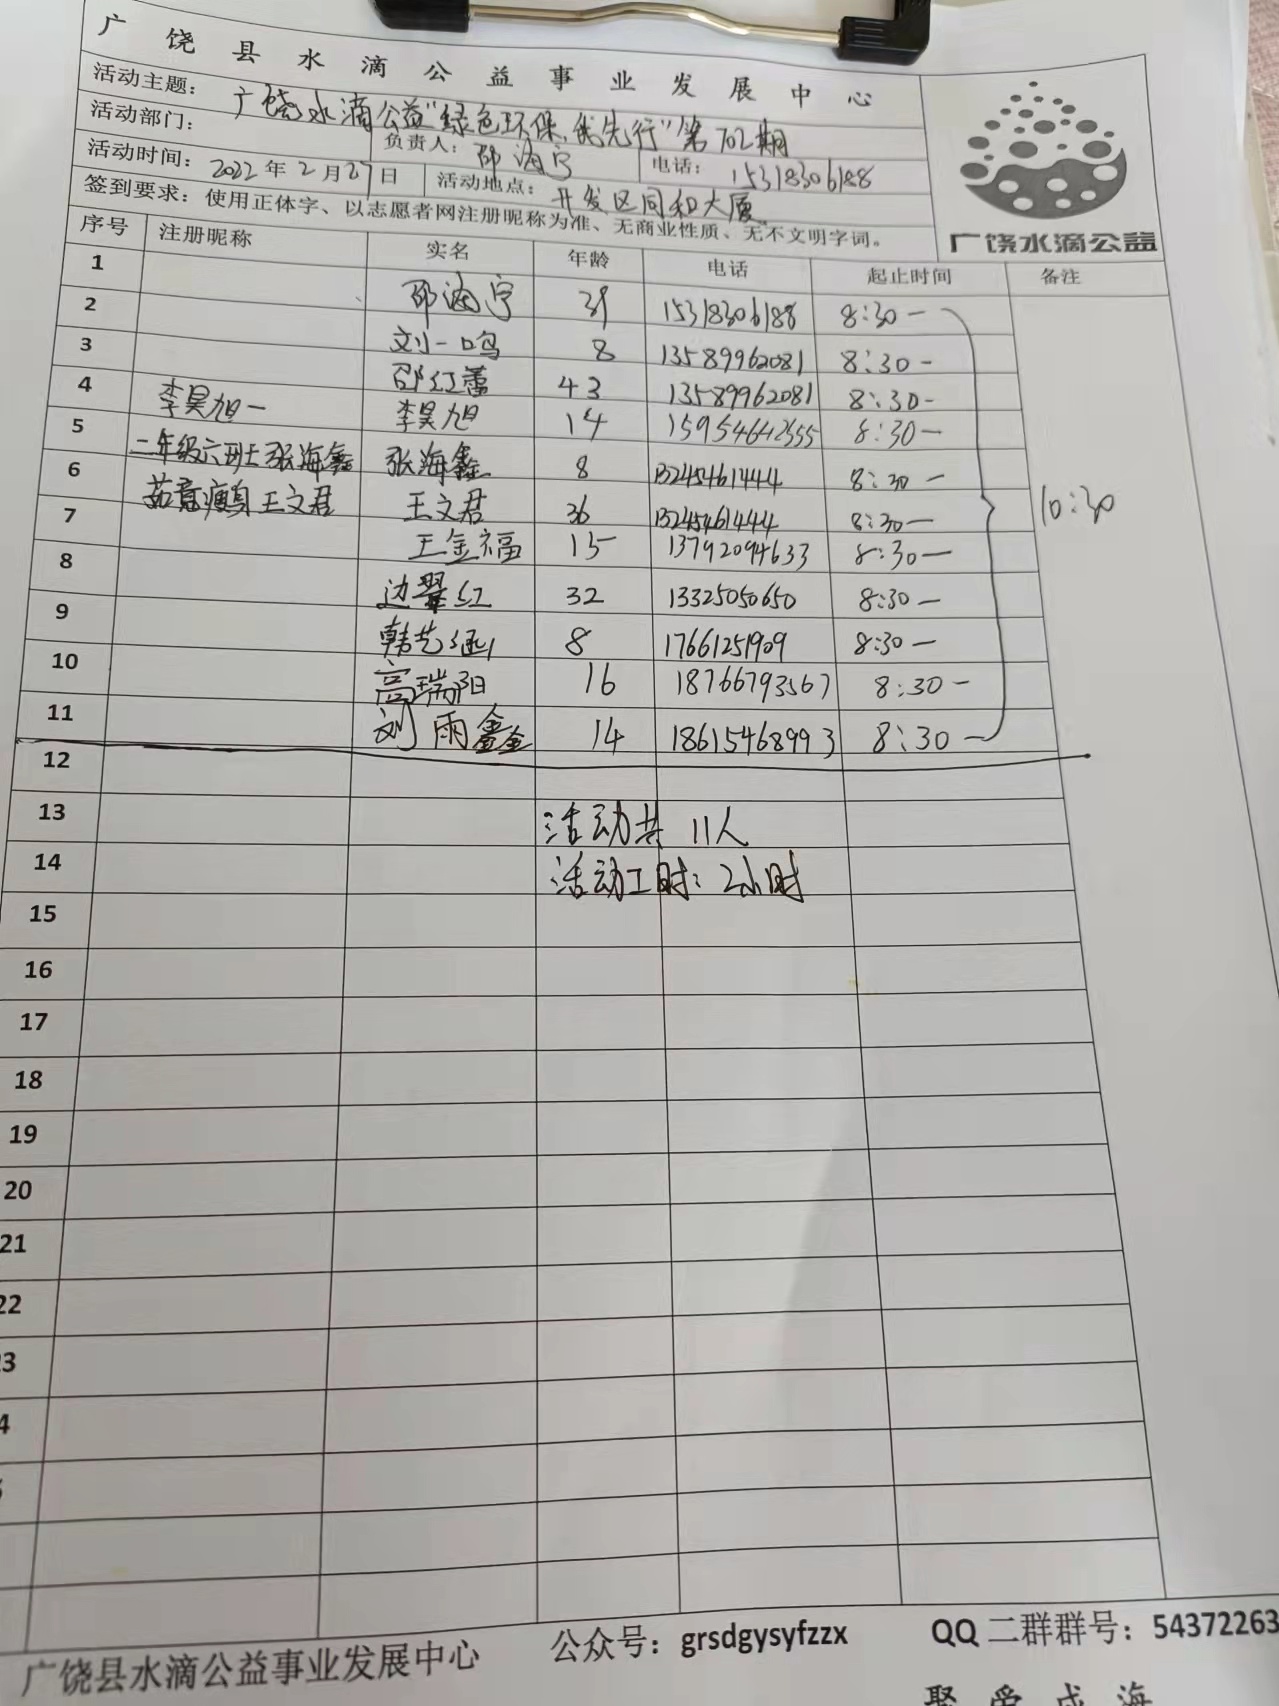 广饶县水滴公益事业发展中心
活动主题：广饶水滴公益"绿色环保，我先行"第702期
活动部门： 负责人：邵海宁 电话：15318306188
活动时间：2022年2月27日 活动地点：开发区同和大厦
签到要求：使用正体字、以志愿者网注册昵称为准、无商业性质、无不文明字词。
广饶水滴公益
序号 注册昵称 实名 年龄 电话 起止时间 备注
1 邵海宁 39 15318306188 8:30—
2 刘一鸣 8 13589962081 8:30-
3 邵红蕾 43 13589962081 8:30-
4 李昊旭一 李昊旭 14 15954642555 8:30—
5 二年级六班张海鑫 张海鑫 8 13245461444 8:30—
6 茹意瘦身王文君 王文君 36 13245461444 8:30— 10:30
7 王金福 15 13792094633 8:30—
8 边翠红 32 13325050650 8:30—
9 韩艺涵 8 17661251909 8:30—
10 高瑞阳 16 18766793567 8:30-
11 刘雨鑫 14 18615468993 8:30—
12
13 活动共 11人
14 活动工时：2小时
15
16
17
18
19
20
21
22
23
4
广饶县水滴公益事业发展中心 公众号：grsdgysyfzzx QQ二群群号：54372263
聚爱成海